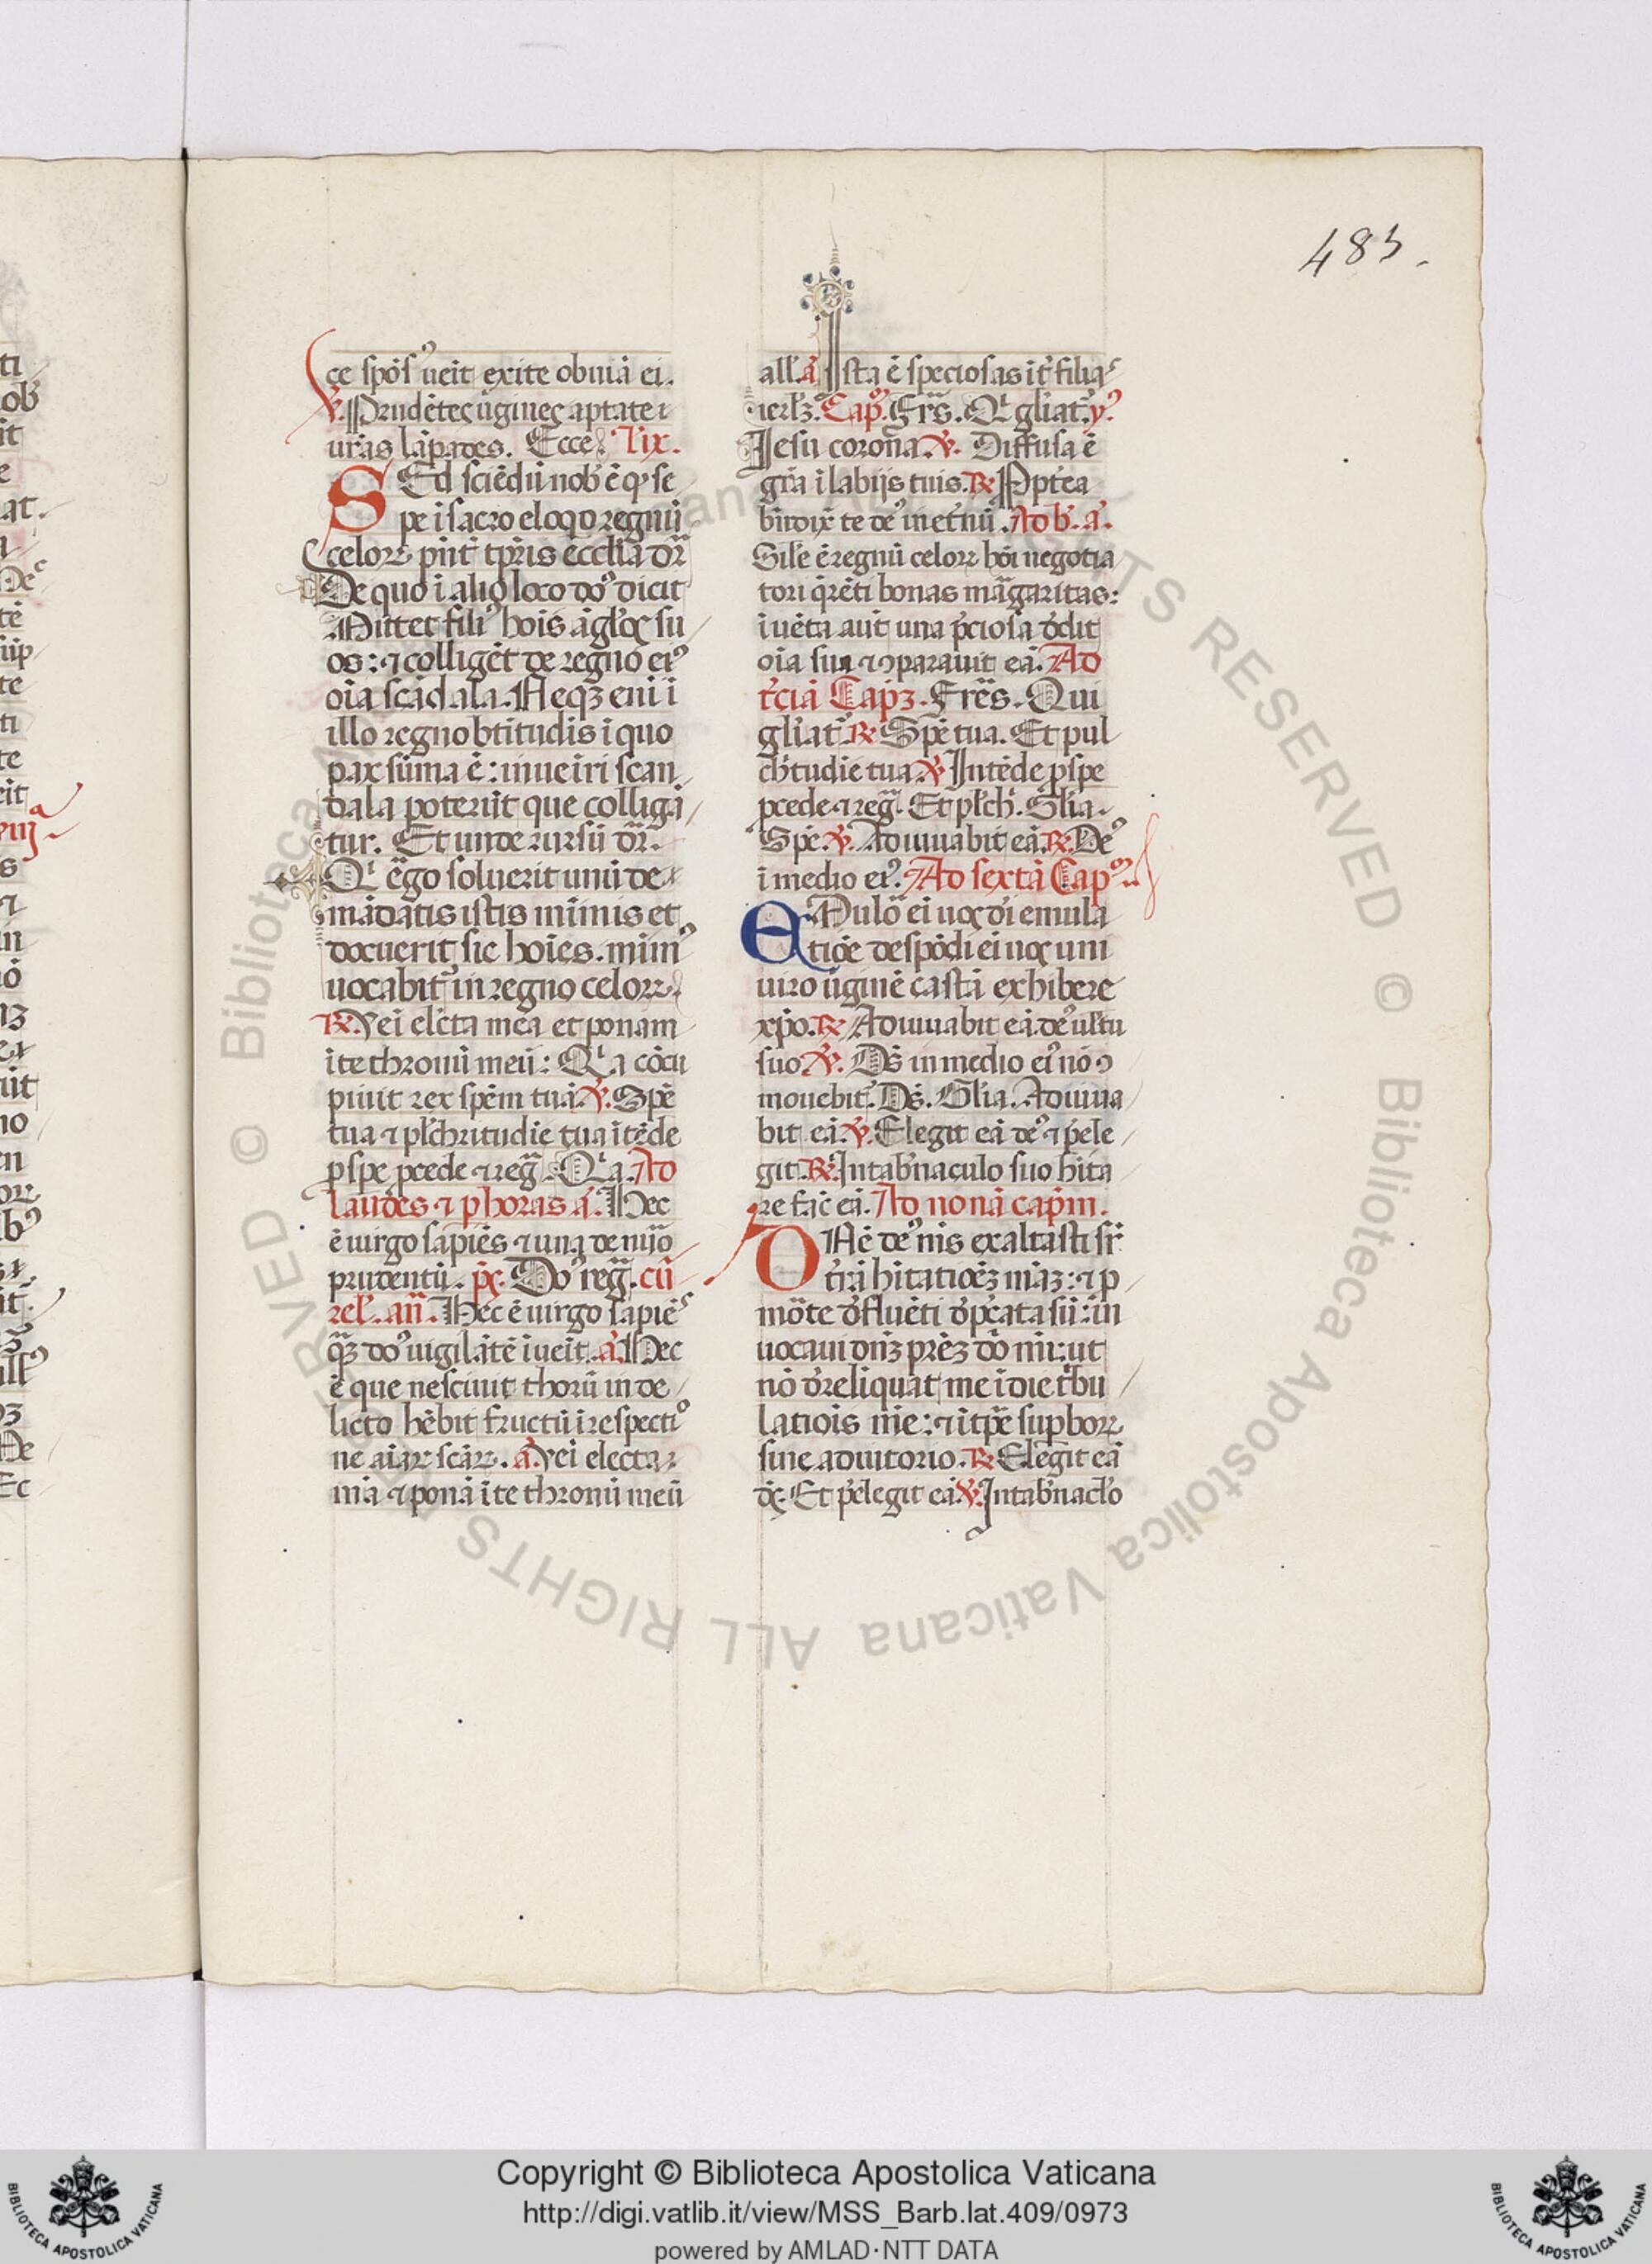 483.
ce spōs᷒ ueīt exite obuiā ei.
℣. Prudētes ūgines aptate
uras lāpades. Ecce. L'ix.
SEd sciēdū nob̄ ē ꝙ se
pe ī sacro eloqo regnū
celoꝝ pn̄t tp̄ris ecclīa dr̄
De quo ī alio loco dōꝰ dicit
Mittet filiꝰ hoīs āglos su
os: ⁊ colligēt de regno eiꝰ
oīa scādala. Neqꝫ enī ī
illo regno btītudīs ī quo
pax sūma ē: inueīri scan
dala poterūt que colligā
tur. Et unde rursū dr̄.
Qͥ ēgo soluerit unū de
mādatis istis minimis et
docuerit sic hoīes. minīꝰ
uocabit̄ in regno celoꝝ.
℟. Uei elēta mea et ponam
ī te thronū meū: Qͥa cōcu
piuit rex spēm tuā. ℣. Spē
tua ⁊ pl̄chritudīe tua ītēde
ꝓspe ꝓcede ⁊ reḡ. Qͥa. Ad
laudes ⁊ ꝑ horas ā. Hec
ē uirgo sapiēs ⁊ una de nūo
prudentū. pˢ. Doꝰ reḡ. cū
rel̄. an̄. Hec ē uirgo sapiēs
quā dōꝰ uigilātē īueīt. ā. Hec
ē que nesciuit thorū in de
licto hēbit fructū ī respectiōꝰ
ne aīaꝝ scāꝝ. ā. Uei electa
mā ⁊ ponā ī te thronū meū
all̄. ā Ista ē speciosas īt̄ filias
ierl̄ꝫ. Capᵐ. Frs̄. Qͥ gliat̄. yᵒ
Jesu corona. ℣. Diffusa ē
gr̄a ī labijs tuis. ℟ Ꝓpt̄ea
bn̄dixͭ te deꝰ in et̄nū. Ad b̄. ā.
Sīle ē regnū celoꝝ hoī negotia
tori q̄rēti bonas māgaritas:
īuēta aūt una p̄ciosa d̄dit
oīa sua ⁊ ꝯparauit eā. Ad
t̄ciā Capꝫ. Frēs. Qui
gliat̄. ℟ Spē tua. Et pul
ch̄tudīe tua ℣ Intēde ꝓspe
ꝓcede ⁊ reḡ. Et pl̄ch̄. Gl̄ia.
Spē. ℣. Adiuuabit eā. ℟. Deꝰ
ī medio eiꝰ. Ad sextā Capᵐ
EMulor̄ eī uos dī emula
tiōe despōdi eī uos uni
uiro ūginē castā exhibere
xp̄o. ℟ Adiuuabit eā deꝰ ul̄tu
suo ℣. Ds̄ in medio eiꝰ nō ꝯ
mouebit̄. Ds̄. Gl̄ia. Adiuua
bit eā. ℣. Elegit eā deꝰ ⁊ p̄ele
git. ℟. In tab̄naculo suo hīta
re facͥ eā. Ad nonā capᵐ.
DNē deꝰ ms̄ exaltasti sr̄
t̄rā hītatiōeꝫ mīaꝫ: ⁊ ꝓ
mōte d̄fluēti d̄pͨcata sū: īn
uocaui dn̄ꝫ prēꝫ dn̄i mī: ut
nō d̄reliquat me ī die t̄bu
latiōis mē: ⁊ ī tp̄e sup̄boꝝ
sine adiutorio. ℟ Elegit eā
ds̄. Et p̄elegit eā ℣. In tab̄nac̄lo
Copyright © Biblioteca Apostolica Vaticana
http://digi.vatlib.it/view/MSS_Barb.lat.409/0973
powered by AMLAD·NTT DATA